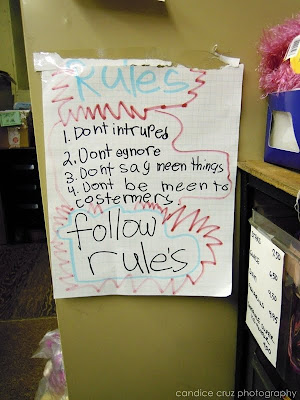 Rules
1. Dont intrupes
2. Dont egnore
3. Dont say meen things
4. Dont be meen to
costermers!
follow
rules
candice cruz photography